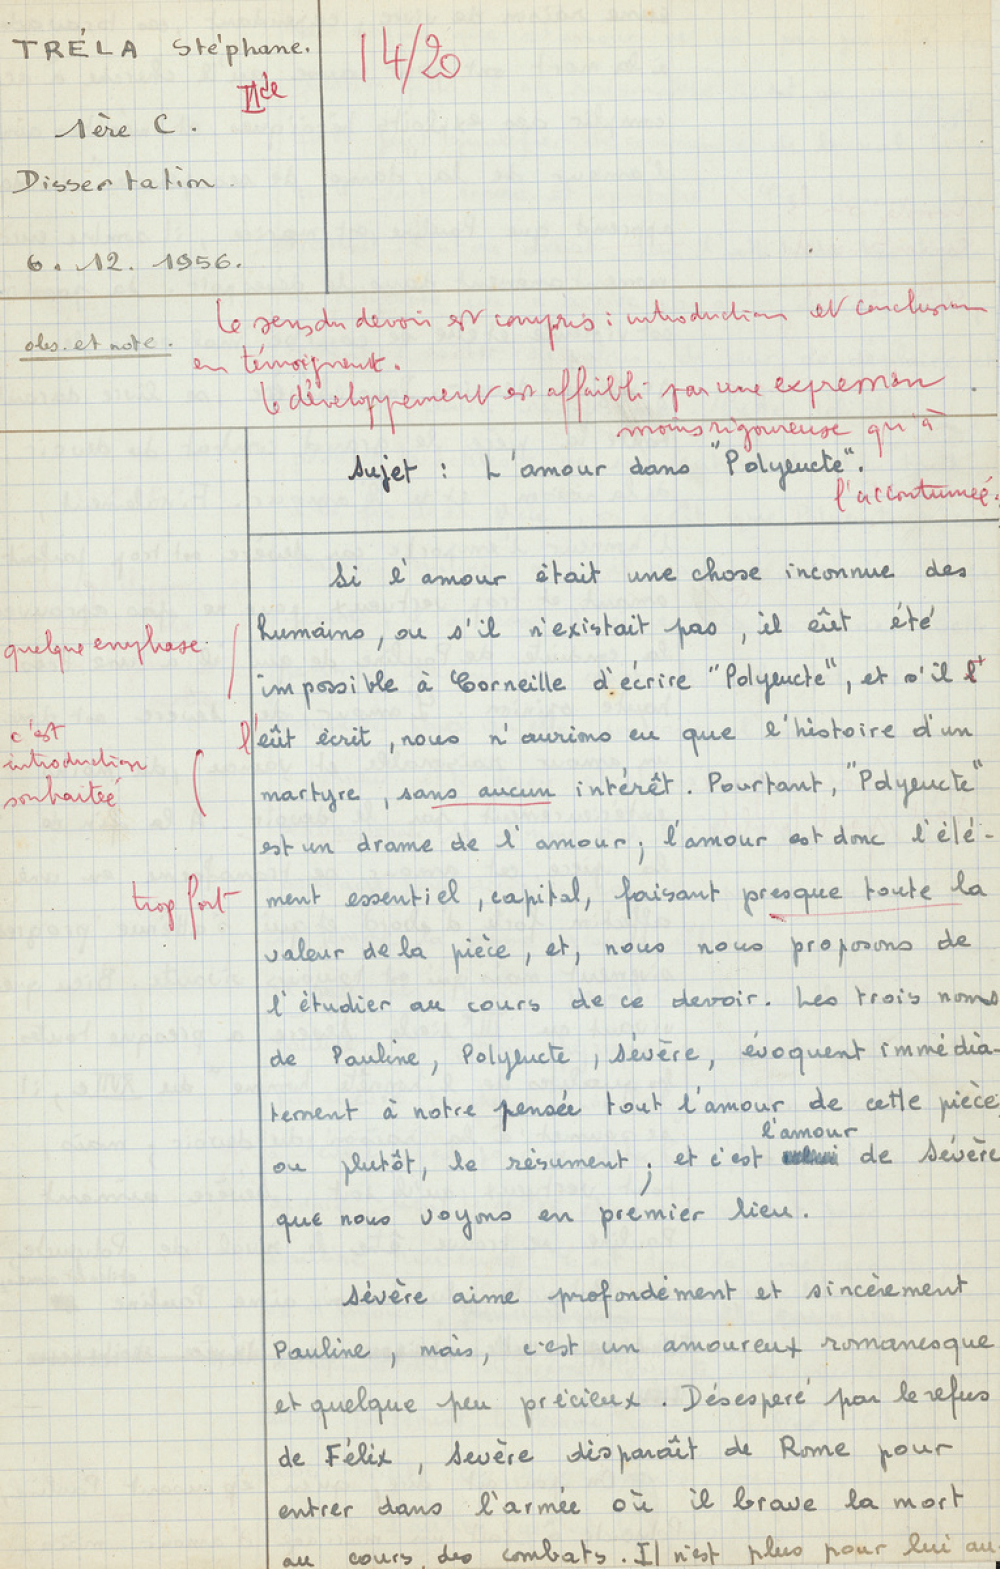 TRÉLA Stéphane.
14/20
IIde
1ère C.
Dissertation.
6. 12. 1956.
obs. et note.
Le sens du devoir est compris : introduction et conclusion
en témoignent.
Le développement est affaibli par une expression
moins rigoureuse qu'à
l'accoutumée.
Sujet : L'amour dans "Polyeucte".
Si l'amour était une chose inconnue des
humains, ou s'il n'existait pas, il eût été
quelque emphase.
impossible à Corneille d'écrire "Polyeucte", et s'il l'
c'est
introduction
souhaitée
l'eût écrit, nous n'aurions eu que l'histoire d'un
martyre, sans aucun intérêt. Pourtant, "Polyeucte"
est un drame de l'amour ; l'amour est donc l'élé-
trop fort
ment essentiel, capital, faisant presque toute la
valeur de la pièce, et, nous nous proposons de
l'étudier au cours de ce devoir. Les trois noms
de Pauline, Polyeucte, Sévère, évoquent immédia-
tement à notre pensée tout l'amour de cette pièce,
l'amour
ou plutôt, le résument ; et c'est de Sévère
que nous voyons en premier lieu.
Sévère aime profondément et sincèrement
Pauline, mais, c'est un amoureux romanesque
et quelque peu précieux. Désespéré par le refus
de Félix, Sévère disparaît de Rome pour
entrer dans l'armée où il brave la mort
au cours des combats. Il n'est plus pour lui au-